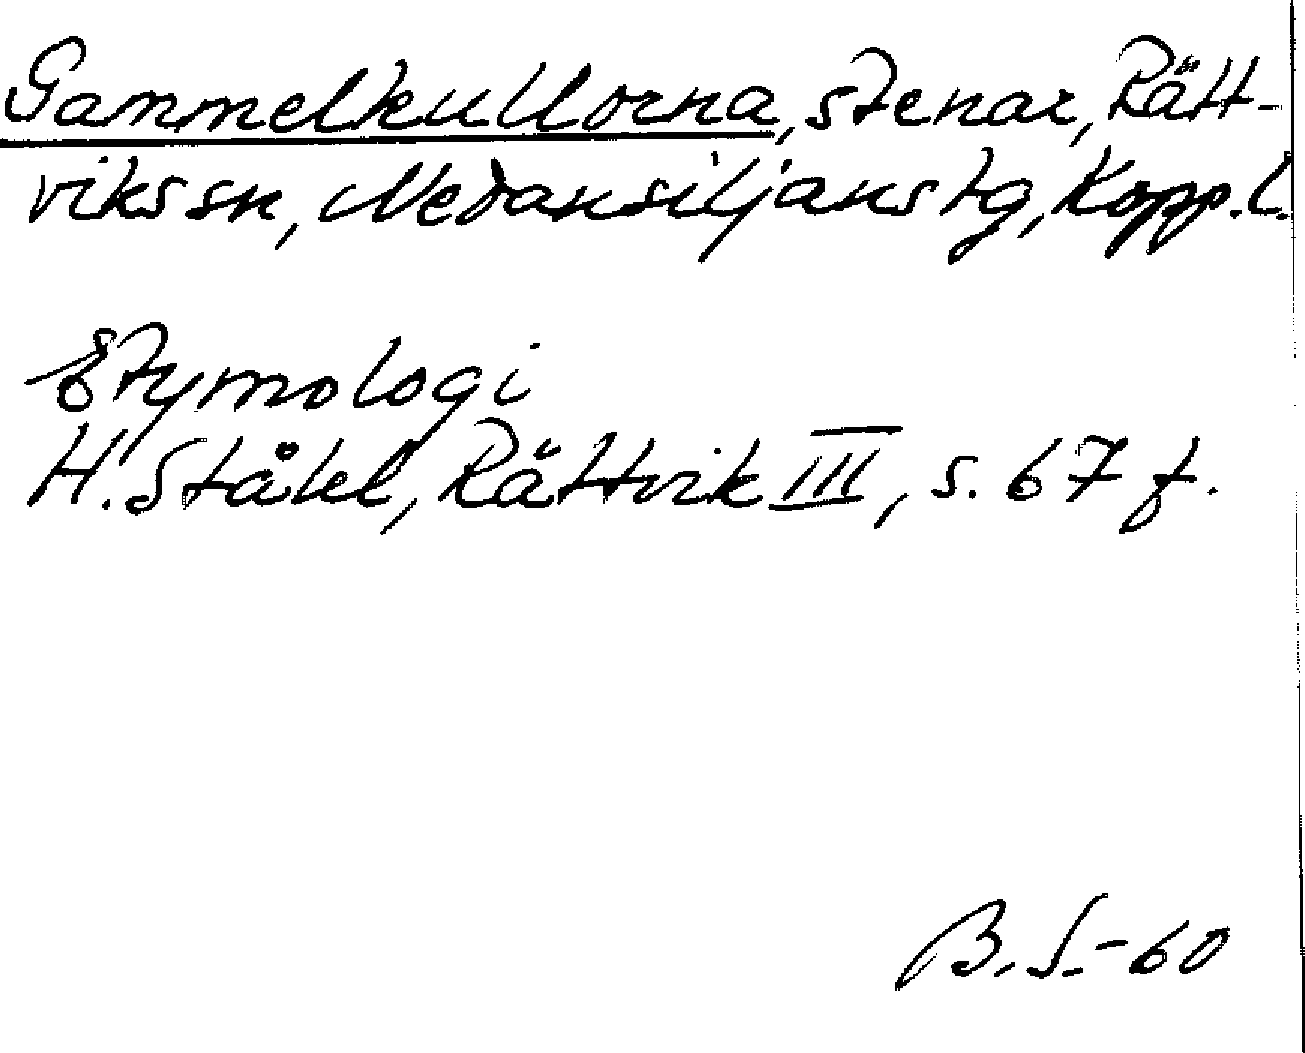 Gammelkullorna, stenar, Rätt-
viks sn, Nedansiljans tg, Kopp. l.
Etymologi
H. Ståhl, Rättvik III, s. 67 f.
B. S. - 60